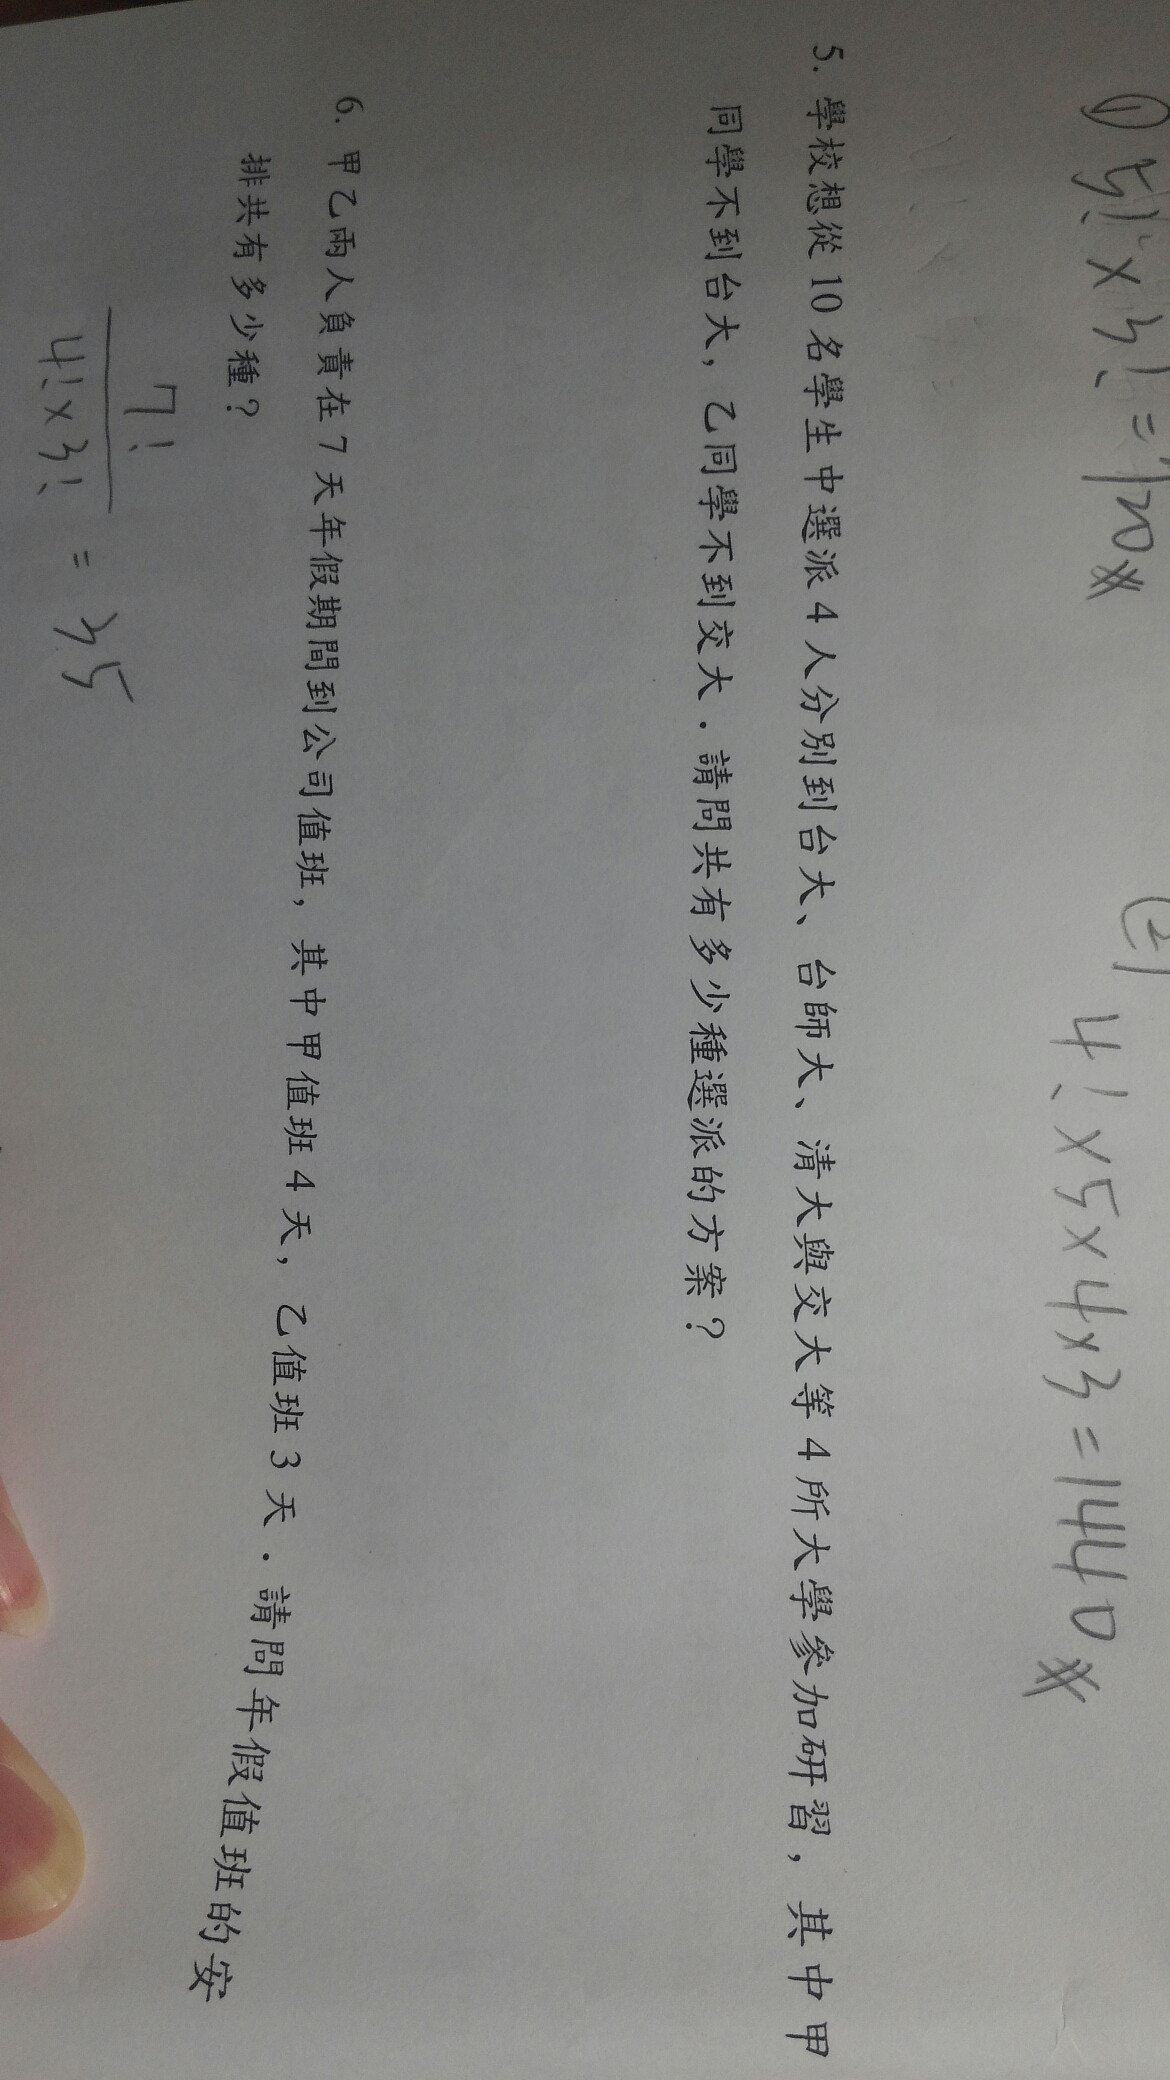 (1) 5! × 3! = 720※
(2) 4! × 5 × 4 × 3 = 1440※
5. 學校想從 10 名學生中選派 4 人分別到台大、台師大、清大與交大等 4 所大學參加研習，其中甲
同學不到台大，乙同學不到交大．請問共有多少種選派的方案？
6. 甲乙兩人負責在 7 天年假期間到公司值班，其中甲值班 4 天，乙值班 3 天．請問年假值班的安
排共有多少種？
7!
4! × 3! = 35